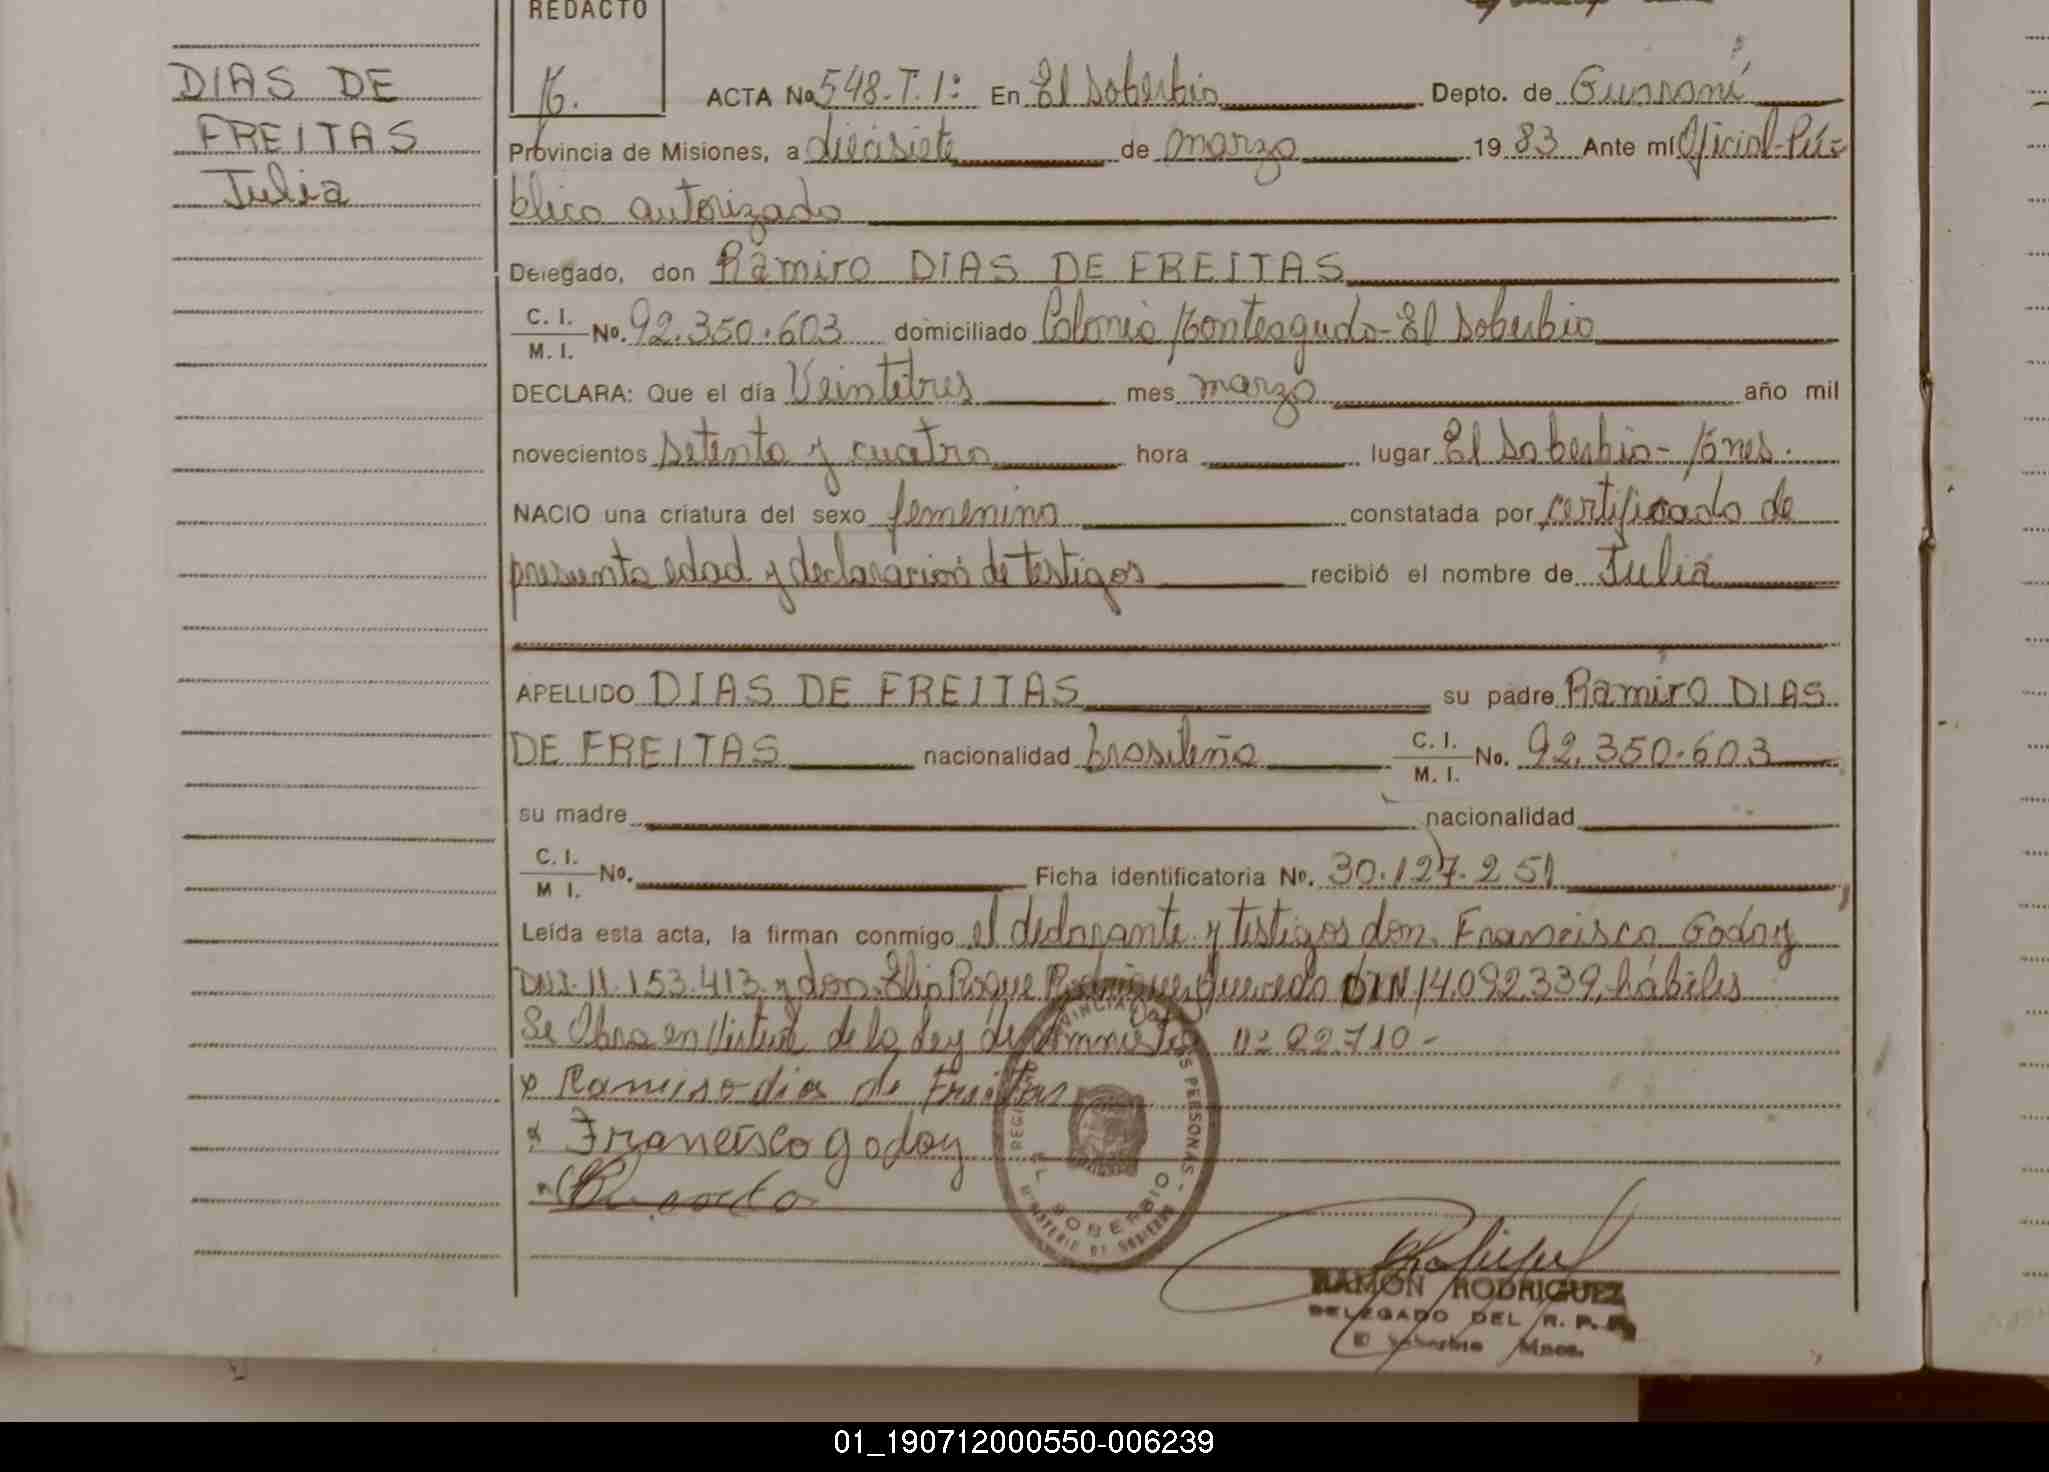 REDACTO
DIAS DE
FREITAS
Julia
ACTA No 548.T.1: En El Soberbio Depto. de Guaraní
Provincia de Misiones, a diecisiete de marzo 1983 Ante mí Oficial Pú=
blico autorizado
Delegado, don Ramiro DIAS DE FREITAS
C. I.
M. I. No. 92.350.603 domiciliado Colonia Monteagudo-El Soberbio
DECLARA: Que el día Veintetres mes marzo año mil
novecientos setenta y cuatro hora lugar El Soberbio- Mnes.
NACIO una criatura del sexo femenino constatada por certificado de
presunta edad y declaración de testigos recibió el nombre de Julia
APELLIDO DIAS DE FREITAS su padre Ramiro DIAS
DE FREITAS nacionalidad brasileña C. I.
M. I. No. 92.350.603
su madre nacionalidad
C. I.
M I. No. Ficha identificatoria No. 30.127.251
Leída esta acta, la firman conmigo el declarante y testigos don Francisco Godoy
DNI. 11.153.413 y don Elio Roque Rodriguez Quevedo 14.092.339, hábiles
Se Obra en Virtud de la Ley de Amnistía nº 22.710-
x Ramiro dias de Freitas
x Francisco godoy
REGI PROVINCIAL DE LAS PERSONAS
EL SOBERBIO
MINISTERIO DE GOBIERNO
RAMON RODRIGUEZ
DELEGADO DEL R. P. P.
El Soberbio Mnes.
01_190712000550-006239